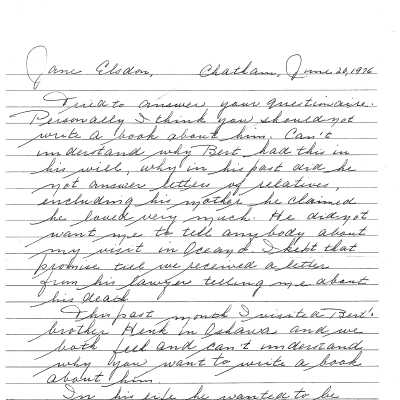 Jane Elsdon, Chatham, June 20, 1976
Tried to answer your questionaire.
Personally I think you should not
write a book about him. Can't
understand why Bert had this in
his will, why in his past did he
not answer letters of relatives,
including his mother, he claimed
he loved very much. He did not
want me to tell anybody about
my visit in Oceano. I kept that
promise till we received a letter
from his lawyer telling me about
his death.
This past month I visited Bert's
brother Henk in Oshawa and we
both feel and can't understand
why you want to write a book
about him.
In his life he wanted to be